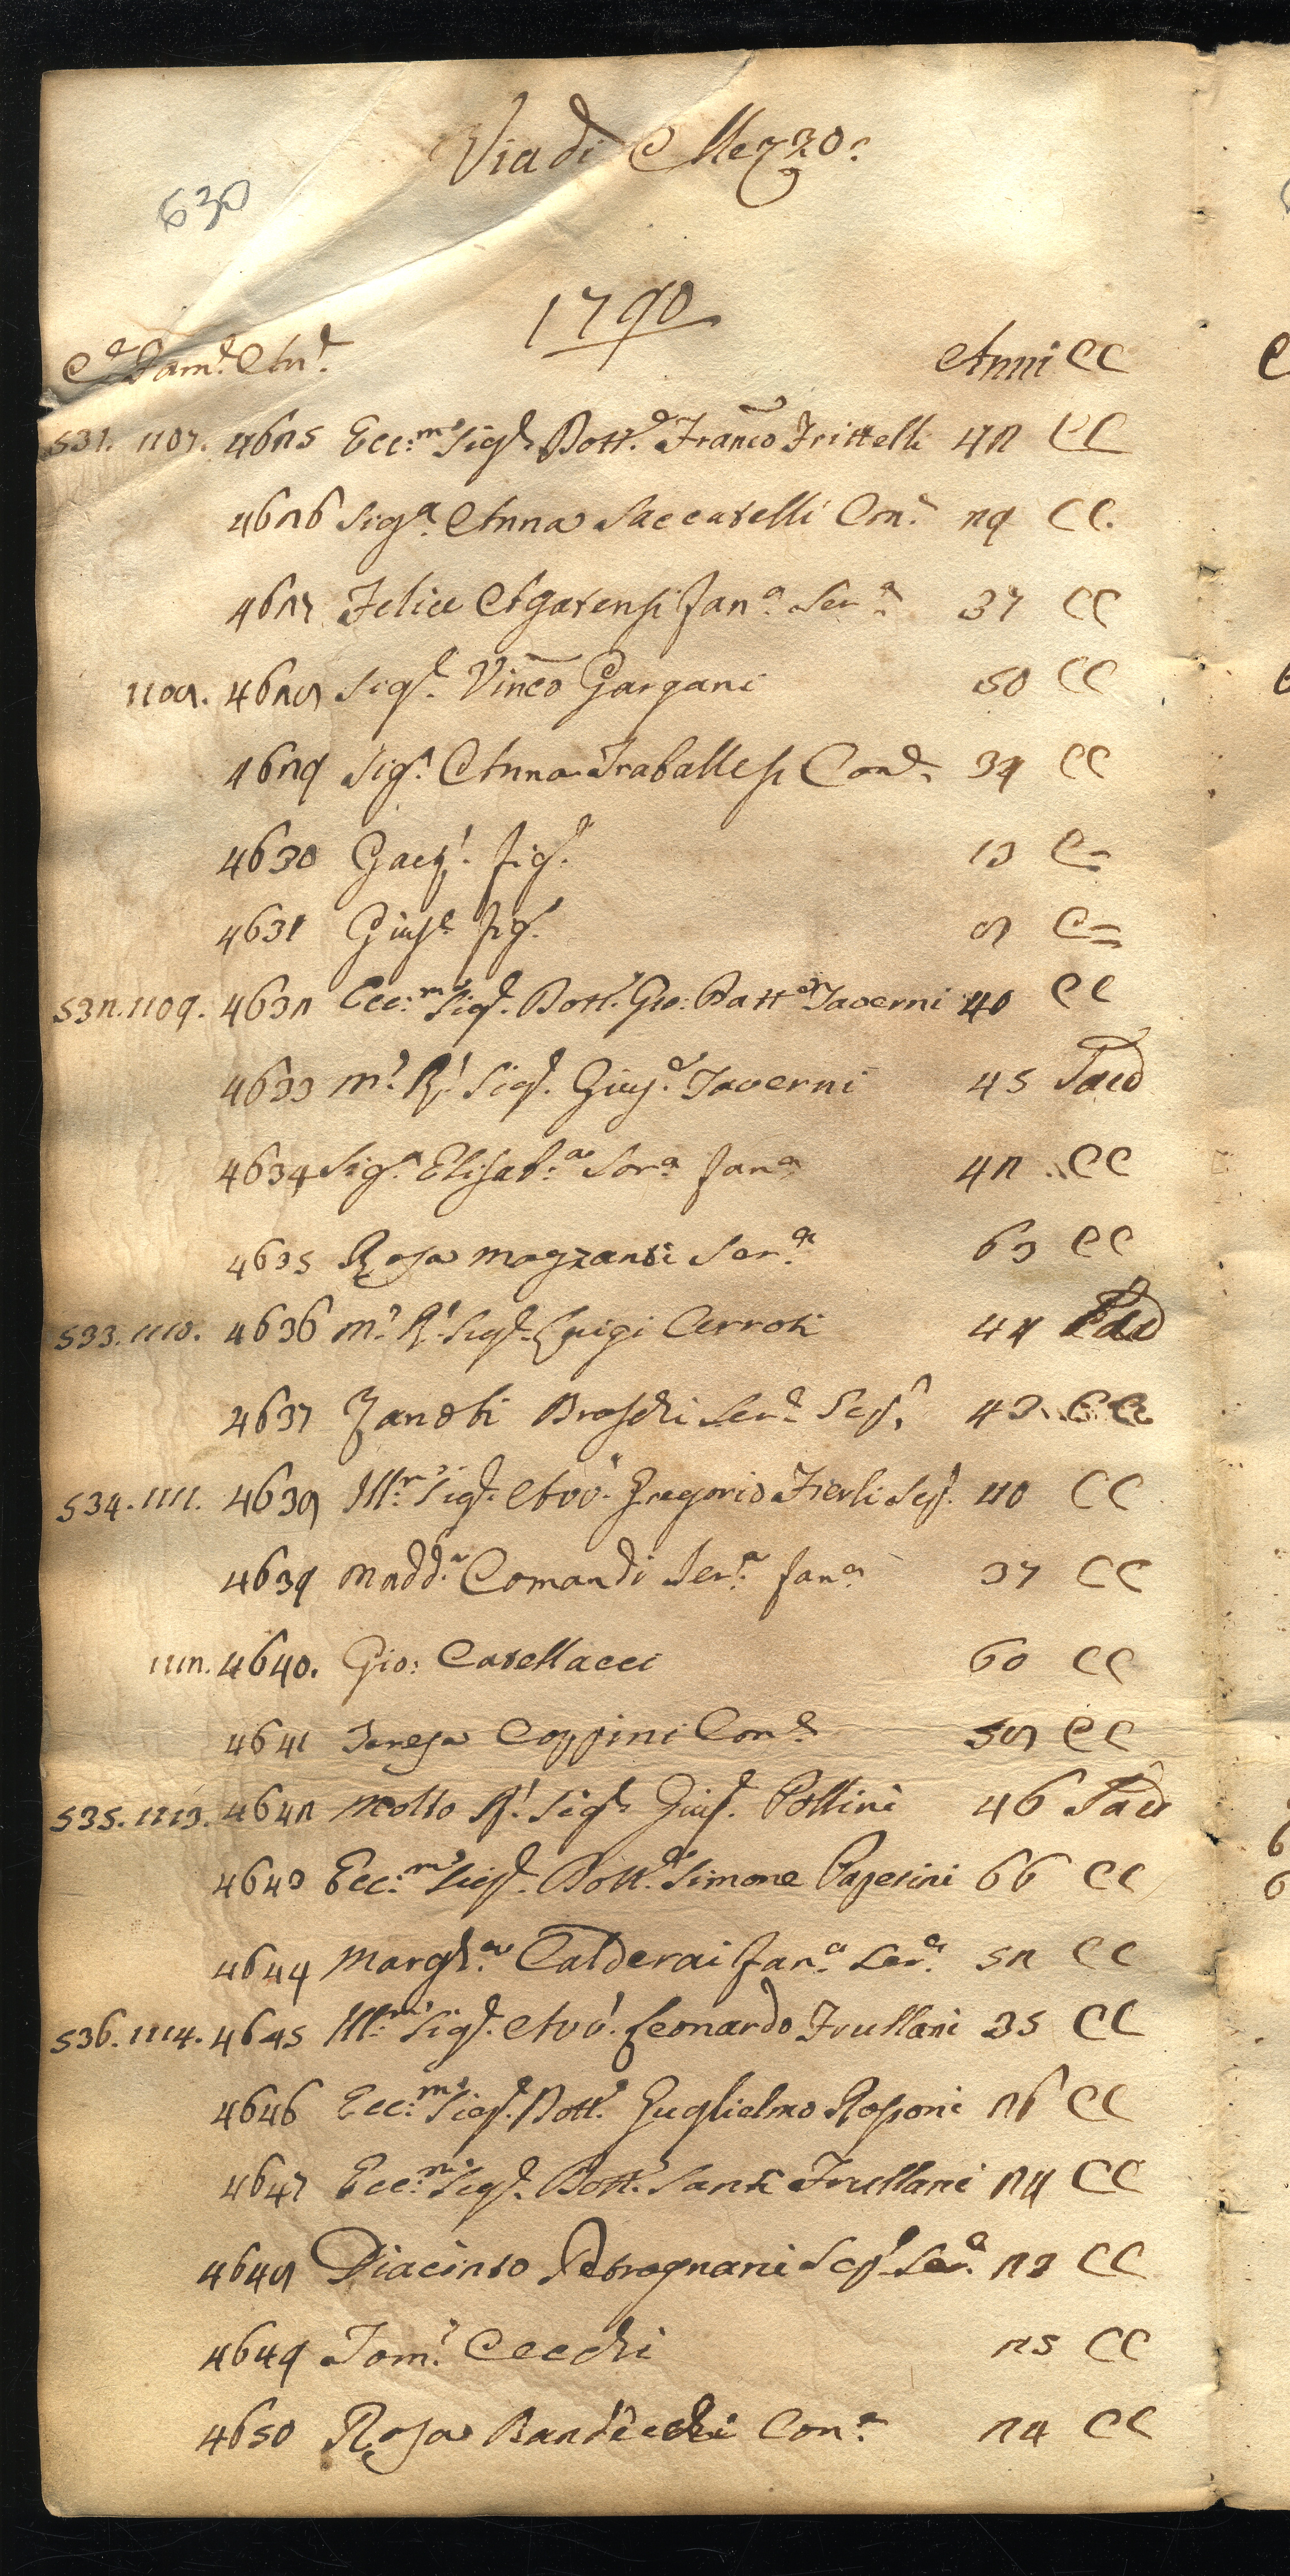 Via di Mezzo.
630
1790
C.e Fam.e An.e Anni CC
531. 1107. 4625 Ecc.mo Sig.e Dott.e Fran.co Frittelli 42 CC
4626 Sig.a Anna Saccarelli Con.e 29 CC.
4627 Felice Agarensi fan.a Ser.a 37 CC
1108. 4628 Sig.e Vinc.o Gargani 50 CC
4629 Sig.a Anna Traballesi Con.e 39 CC
4630 Gaet.o fig.e 13 C=
4631 Gius.e fig.o 8 C=
532. 1109. 4632 Ecc.mo Sig.e Dott.e Gio: Batt.a Taverni 40 CC
4633 M.o R.o Sig.e Gius.e Taverni 45 Sacd
4634 Sig.a Elisab.a Sor.a fan.a 42 CC
4635 Rosa Mazzanti Ser.a 63 CC
533. 1110. 4636 M.o R.o Sig.e Luigi Cerroti 44
4637 Zanobi Broschi Ser.e Scap.o 43 CC
534. 1111. 4638 Ill.mo Sig.e Avv.o Gregorio Fierli Scap. 40 CC
4639 Madd.a Comandi Ser.a fan.a 37 CC
1112. 4640. Gio: Casellacci 60 CC
4641 Teresa Coppini Con.e 58 CC
535. 1113. 4642 Molto R.o Sig.e Gius.e Pollini 46 Sacd
4643 Ecc.mo Sig.e Dott.e Simone Paperini 66 CC
4644 Margh.a Calderai fan.a Ser.a 52 CC
536. 1114. 4645 Ill.mo Sig.e Avv.o Leonardo Frullani 35 CC
4646 Ecc.mo Sig.e Dott.e Guglielmo Rosponi 26 CC
4647 Ecc.mo Sig.e Dott.e Santi Frullani 24 CC
4648 Diacinto Petrognani Scap.o Ser.e 23 CC
4649 Tom.o Cecchi 25 CC
4650 Rosa Bandecchi Con.e 24 CC